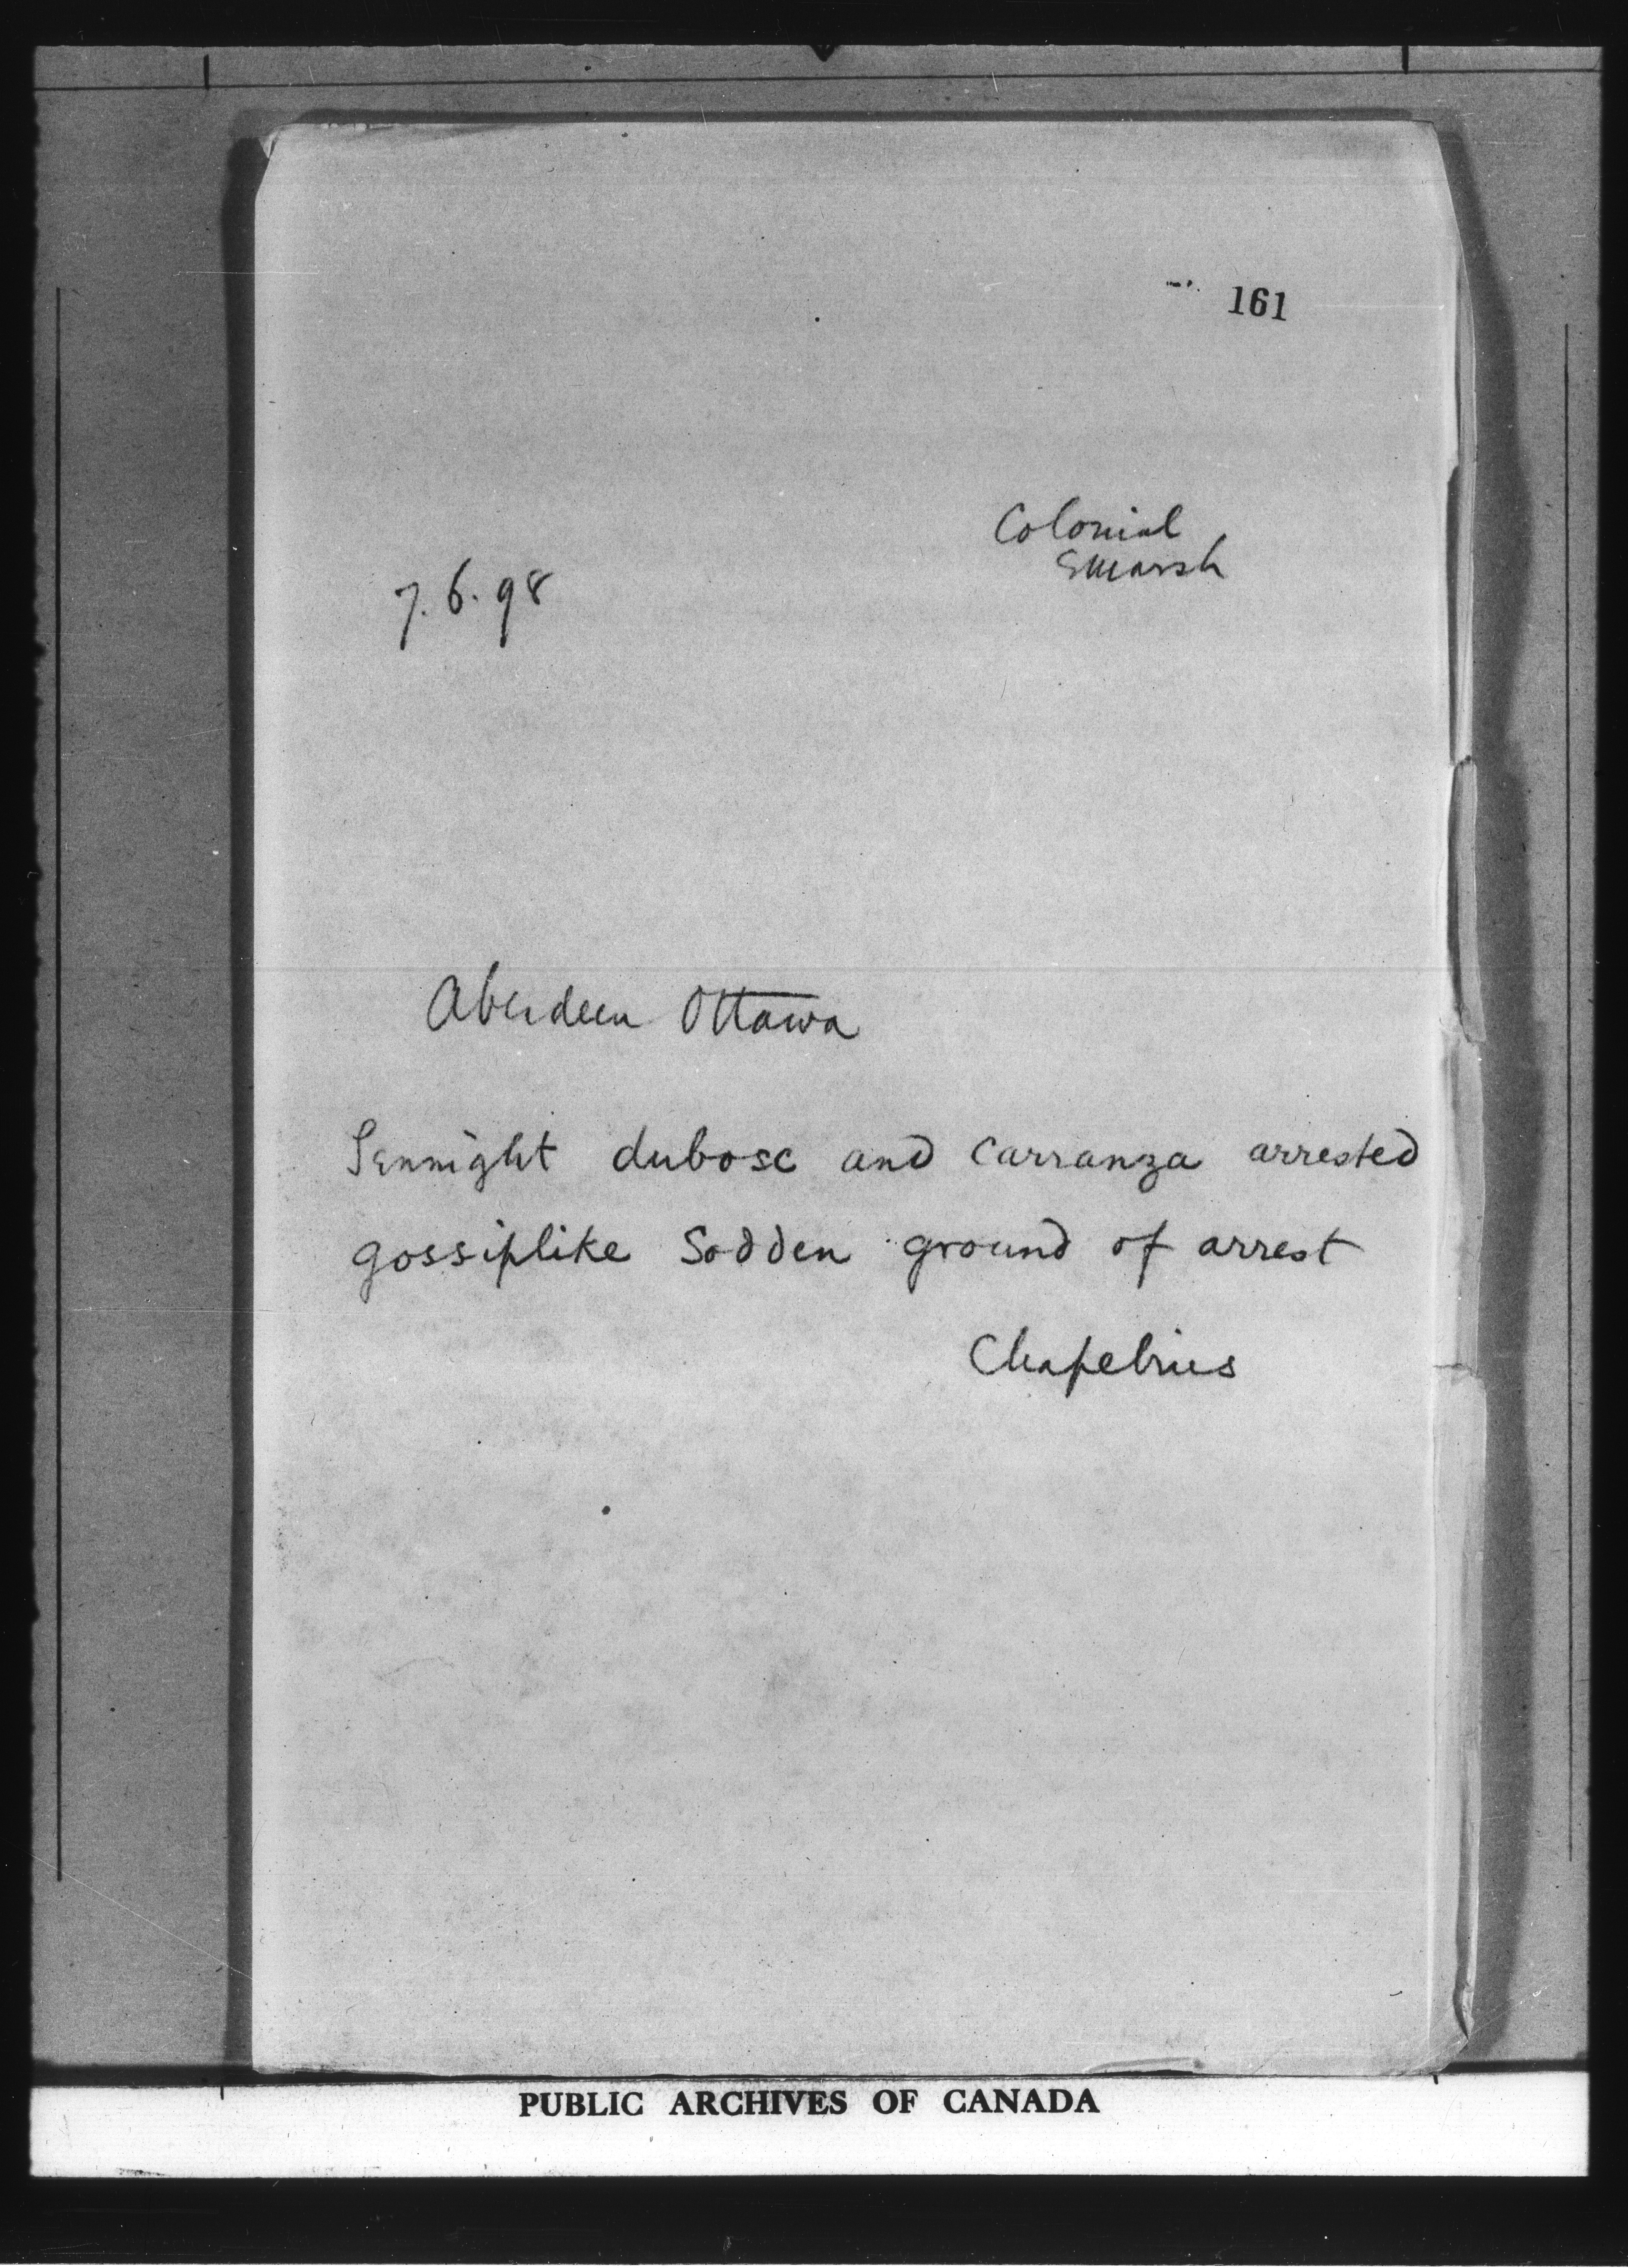 161
Colonial
Smarsh
7.6.98
Aberdeen Ottawa
Sennight dubosc and Carranza arrested
gossiplike Sodden ground of arrest
PUBLIC ARCHIVES OF CANADA